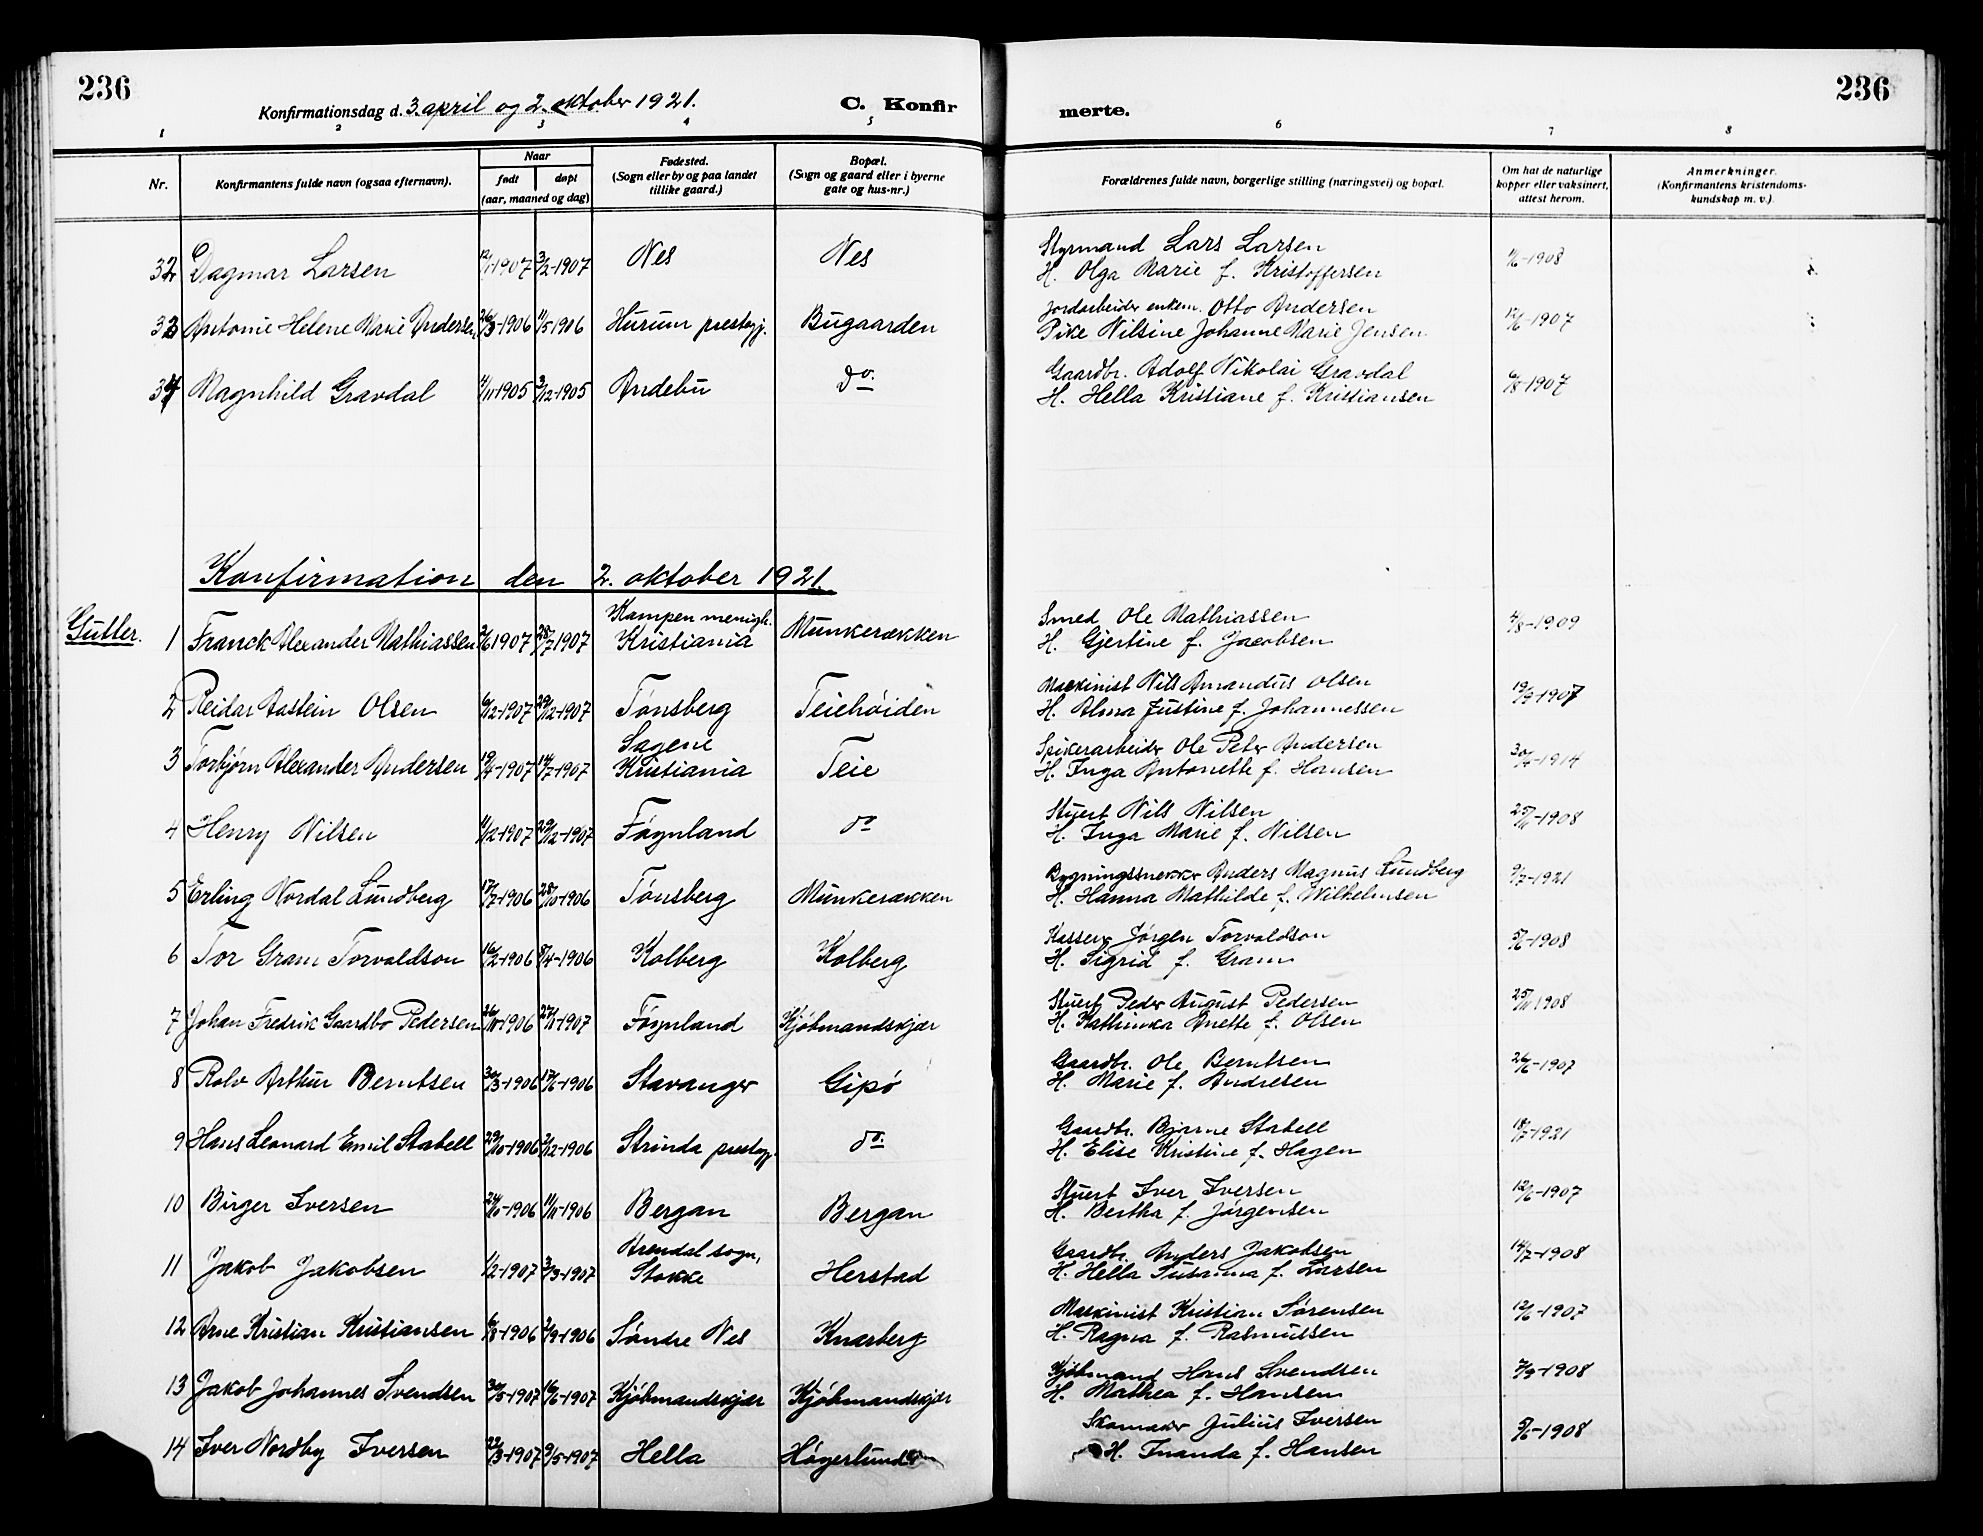 236
Konfirmationsdag d. 3. april og 2. oktober 1921.
C. Konfir
merte.
236
1 2 3 4 5 6 7 8
Nr.
Konfirmantens fulde navn (ogsaa efternavn).
Naar
født
døpt
(aar, maaned og dag)
Fødested.
(Sogn eller by og paa landet
tillike gaard.)
Bopæl.
(Sogn og gaard eller i byerne
gate og hus-nr.)
Forældrenes fulde navn, borgerlige stilling (næringsvei) og bopæl.
Om hat de naturlige
kopper eller vaksinert,
attest herom.
Anmerkninger.
(Konfirmantens kristendoms-
kundskap m. v.).
32 Dagmar Larsen 12/1-1907 3/2-1907 Nes Nes Styrmand Lars Larsen 11/6-1908
H. Olga Marie f. Kristoffersen
33 Antonie Helene Marie Andersen 26/3-1906 11/5 1906 Hurum prestegj. Bugaarden Jordarbeider enkem. Otto Andersen 12/6-1907
Pike Nilsine Johanne Marie Jensen
34 Magnhild Gravdal 4/11 1905 3/12-1905 Andebu do. Gaardbr. Adolf Nikolai Gravdal 6/8-1907
H. Hella Kristiane f. Kristiansen
Konfirmation den 2. oktober 1921.
Gutter.
Kampen menigh.
1 Franck Alexander Mathiassen 2/6 1907 28/7 1907 Kristiania Munkerækken Smed Ole Mathiassen 4/8-1909
H. Gjertine f. Jacobsen
2 Reidar Aastein Olsen 6/12-1907 29/12-1907 Tønsberg Teiehøiden Maskinist Nils Amandus Olsen 19/9-1907
H. Alma Justine f. Johannessen
Sagene
3 Torbjørn Alexander Andersen 19/4-1907 14/7-1907 Kristiania Teie Spikerarbeider Ole Peter Andersen 30/4-1914
H. Inga Antonette f. Hansen
4 Henry Nilsen 11/12-1907 29/12-1907 Føynland do Stuert Nils Nilsen 25/11-1908
H. Inga Marie f. Nilsen
5 Erling Nordal Lundberg 17/7-1906 28/10-1906 Tønsberg Munkerækken Bygningssnekker Anders Magnus Lundberg 9/7-1921
H. Hanna Mathilde f. Wilhelmsen
6 Tor Gram Torvaldson 16/2-1906 8/4-1906 Kolberg Kolberg Kasserer Jørgen Torvaldson 5/6-1908
H. Sigrid f. Gram
7 Johan Fredrik Gaardbo Pedersen 26/10-1906 27/1-1907 Føynland Kjøbmandskjær Stuert Peder August Pedersen 25/11 1908
H. Kathinka Anette f. Olsen
8 Rolv Arthur Berntsen 30/3-1906 17/6-1906 Stavanger Gipø Gaardbr. Ole Berntsen 26/6-1907
H. Marie f. Andresen
9 Hans Leonard Emil Stabell 29/10-1906 2/12-1906 Strinda prestegj. do. Gaardbr. Bjarne Stabell 18/7-1921
H. Elise Kristine f. Hagen
10 Birger Iversen 24/6-1906 11/11-1906 Bergan Bergan Stuert Iver Iversen 12/6-1907
H. Bertha f. Jørgensen
Arendal sogn,
11 Jakob Jakobsen 1/2-1907 3/3-1907 Stokke Herstad Gaardbr. Anders Jakobsen 14/7-1908
H. Hella Susanna f. Larsen
12 Arne Kristian Kristiansen 6/8-1906 2/9-1906 Søndre Nes Knarberg Maskinist Kristian Sørensen 12/6-1907
H. Ragna f. Rasmussen
13 Jakob Johannes Svendsen 30/5-1907 16/6-1907 Kjøbmandskjær Kjøbmandskjær Kjøbmand Hans Svendsen 7/9-1908
H. Mathea f. Hansen
14 Iver Nordby Iversen 23/3-1907 9/5-1907 Hella Høgerlund Skomaker Julius Iversen 5/6-1908
H. Inanda f. Hansen